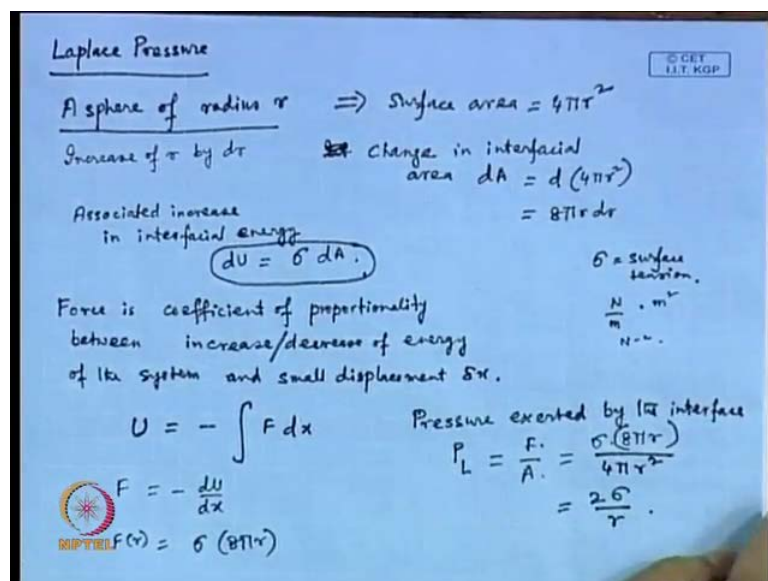 Laplace Pressure
© CET
I.I.T. KGP
A sphere of radius r ⇒ Surface area = 4πr²
Increase of r by dr
Change in interfacial
area dA = d(4πr²)
= 8πr dr
Associated increase
in interfacial energy
dU = σ dA.
σ = surface
tension.
N/m · m²
N-m.
Force is coefficient of proportionality
between increase/decrease of energy
of the system and small displacement δx.
U = - ∫ F dx
F = - dU/dx
F(r) = σ (8πr)
Pressure exerted by the interface
P_L = F/A = σ.(8πr)/4πr²
= 2σ/r.
NPTEL